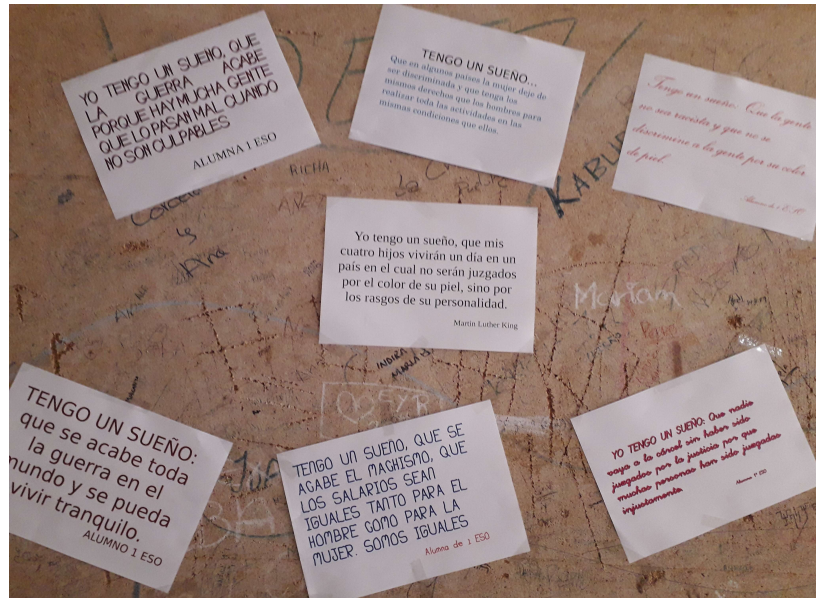 YO TENGO UN SUEÑO, QUE
LA GUERRA ACABE
PORQUE HAY MUCHA GENTE
QUE LO PASAN MAL CUANDO
NO SON CULPABLES
ALUMNA 1 ESO
TENGO UN SUEÑO...
Que en algunos países la mujer deje de
ser discriminada y que tenga los
mismos derechos que los hombres para
realizar toda las actividades en las
mismas condiciones que ellos.
Tengo un sueño. Que la gente
no sea racista y que no se
discrimine a la gente por su color
de piel.
RICHA
KABU
Yo tengo un sueño, que mis
cuatro hijos vivirán un día en un
país en el cual no serán juzgados
por el color de su piel, sino por
los rasgos de su personalidad.
Martin Luther King
Mariam
INDIRA
TENGO UN SUEÑO:
que se acabe toda
la guerra en el
mundo y se pueda
vivir tranquilo.
ALUMNO 1 ESO
TENGO UN SUEÑO, QUE SE
ACABE EL MACHISMO, QUE
LOS SALARIOS SEAN
IGUALES TANTO PARA EL
HOMBRE COMO PARA LA
MUJER. SOMOS IGUALES
Alumna de 1 ESO
YO TENGO UN SUEÑO: Que nadie
vaya a la cárcel sin haber sido
juzgados por la justicia por que
muchas personas han sido juzgadas
injustamente
Alumno 1º ESO